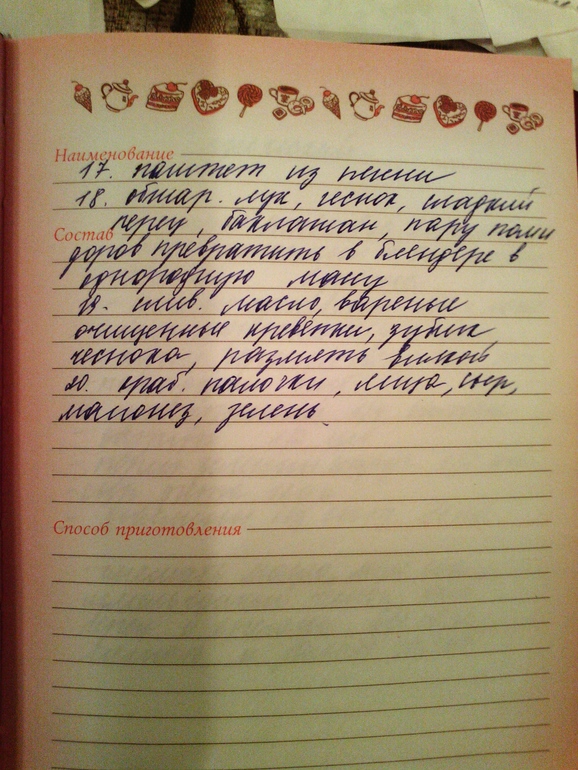 Наименование
17. паштет из печени
18. обжар. лук, чеснок, сладкий
перец, баклажан, пару поми
Состав
доров превратить в блендере в
однородную массу
19. слив. масло, вареные
очищенные креветки, зубчик
чеснока, размять вилкой
20. краб. палочки, яйца, сыр,
майонез, зелень.
Способ приготовления